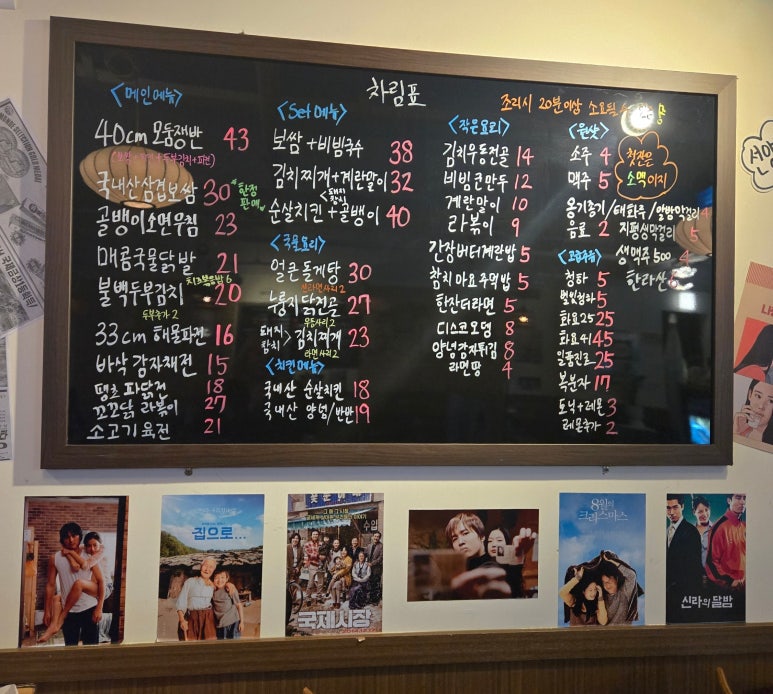 차림표
조리시 20분이상 소요될 수
<메인메뉴>
40cm 모둠쟁반 43
국내산삼겹보쌈 30
한정
판매
골뱅이소면무침 23
매콤국물닭발 21
치즈볶음밥 6
불백두부김치 20
두부추가 2
33cm 해물파전 16
바삭 감자채전 15
땡초 파닭전 18
꼬꼬닭 라볶이 27
소고기 육전 21
<Set메뉴>
보쌈+비빔국수 38
김치찌개+계란말이 32
돼지
참치
순살치킨+골뱅이 40
<국물요리>
얼큰 돌게탕 30
라면사리 2
누룽지 닭전골 27
우동사리 2
돼지
참치 > 김치찌개 23
라면사리 2
<치킨메뉴>
국내산 순살치킨 18
국내산 양념/반반 19
<작은요리>
김치우동전골 14
비빔군만두 12
계란말이 10
라볶이 9
간장버터계란밥 5
참치마요주먹밥 5
한잔더라면 5
디스코오뎅 8
양념감자튀김 8
라면땅 4
<원샷>
소주 4
맥주 5
첫잔은
소맥이지
옹기종기/태화주/알밤막걸리 4
음료 2
지평생막걸리 5
생맥주 500 4
한라산 5
<고급주류>
청하 5
별빛청하 5
화요25 25
화요41 45
일품진로 25
복분자 17
토닉+레몬 3
레몬추가 2
집으로...
그때 그 시절
수입
국제시장
8월의
크리스마스
신라의 달밤